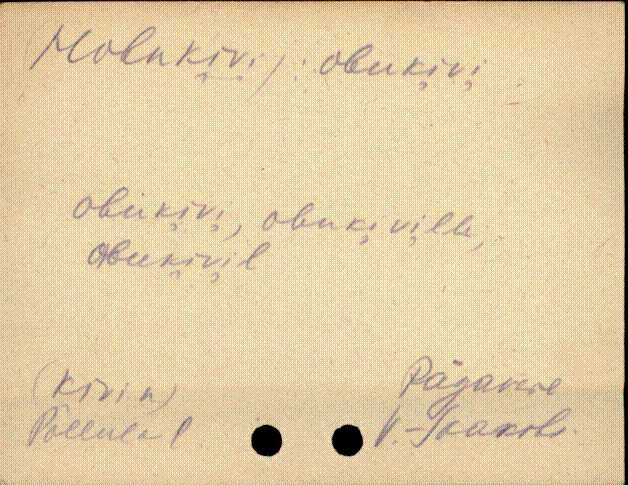 (Hobukivi) : obukivi
obukivi, obukivilla,
obukivil
(kivi n)
Põllulal
Pägavere
V.-Jaakobi